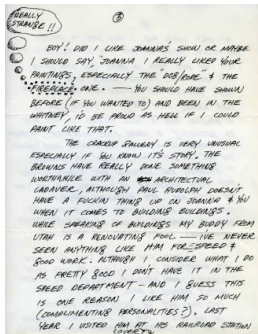 REALLY
STRANGE!!
③
BOY! DID I LIKE JOANNA'S SHOW OR MAYBE
I SHOULD SAY, "JOANNA I REALLY LIKED YOUR
PAINTINGS, ESPECIALLY THE DOG/ROPE" & THE
FIREPLACE ONE. — YOU SHOULD HAVE SHOWN
BEFORE (IF YOU WANTED TO) AND BEEN IN THE
WHITNEY, I'D BE PROUD AS HELL IF I COULD
PAINT LIKE THAT.
THE CRACKUP GALLERY IS VERY UNUSUAL
ESPECIALLY IF YOU KNOW ITS STORY, THE
BROWNS HAVE REALLY DONE SOMETHING
WORTHWHILE WITH AN ARCHITECTURAL
CADAVER, ALTHOUGH PAUL RUDOLPH DOESN'T
HAVE A FUCKIN THING UP ON JOANNA & YOU
WHEN IT COMES TO BUILDING BUILDINGS.
WHILE SPEAKING OF BUILDINGS MY BUDDY FROM
UTAH IS A RENOVATING FOOL — I'VE NEVER
SEEN ANYTHING LIKE HIM FOR SPEED &
GOOD WORK. ALTHOUGH I CONSIDER WHAT I DO
AS PRETTY GOOD I DON'T HAVE IT IN THE
SPEED DEPARTMENT — AND I GUESS THIS
IS ONE REASON I LIKE HIM SO MUCH
(COMPLIMENTING PERSONALITIES?). LAST
YEAR I VISITED HIM AT HIS RAILROAD STATION
(OVER